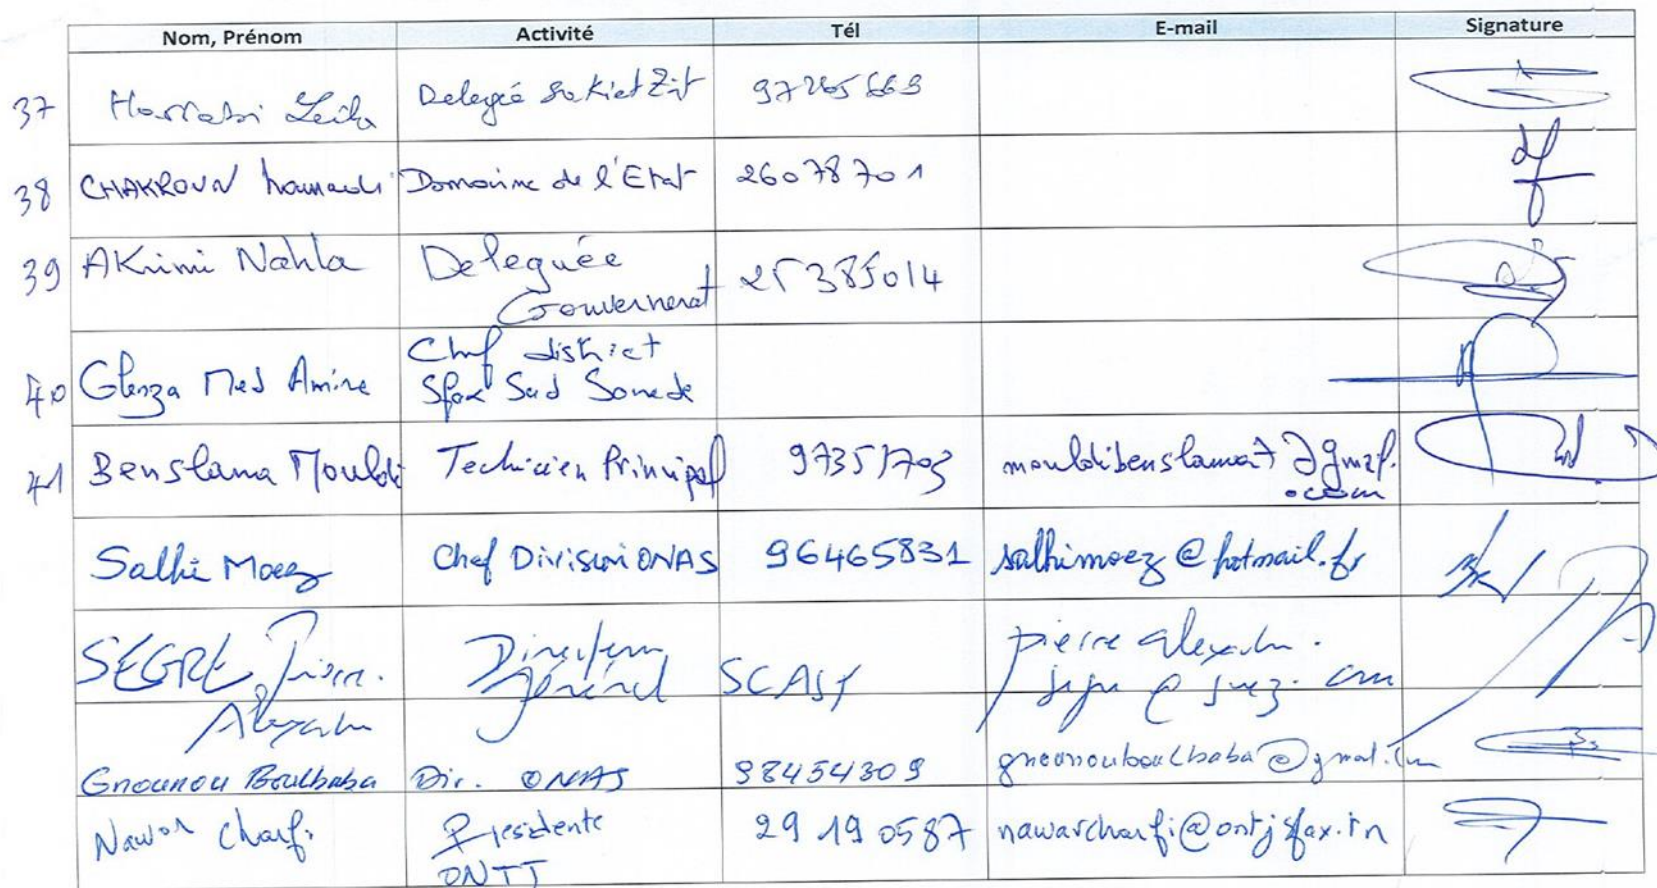 Nom, Prénom Activité Tél E-mail Signature
37 Harrabi Leila Delegée Sakiet Zit 97265669
38 CHAKROUN hamadi Domaine de l'Etat 26078701
39 AKrimi Nahla Deleguée 25385014
Gouvernerat
40 Glenza Med Amine Chef district
Sfax Sud Sonede
41 Benslama Mouldi Technicien Principal 97351703 mouldibenslama7@gmail.
.com
Salhi Moez Chef Division ONAS 96465831 salhimoez@hotmail.fr
SEGRE, Pierre. Directeur pierre alexandre.
Général SCAST segre @ suez. com
Alexandre
Gnounou Boulbaba Dir. ONAS 98454309 gnounouboulbaba@gmail.com
Nawar Charfi Presidente 29 190587 nawarcharfi@ontjsfax.tn
ONTJ